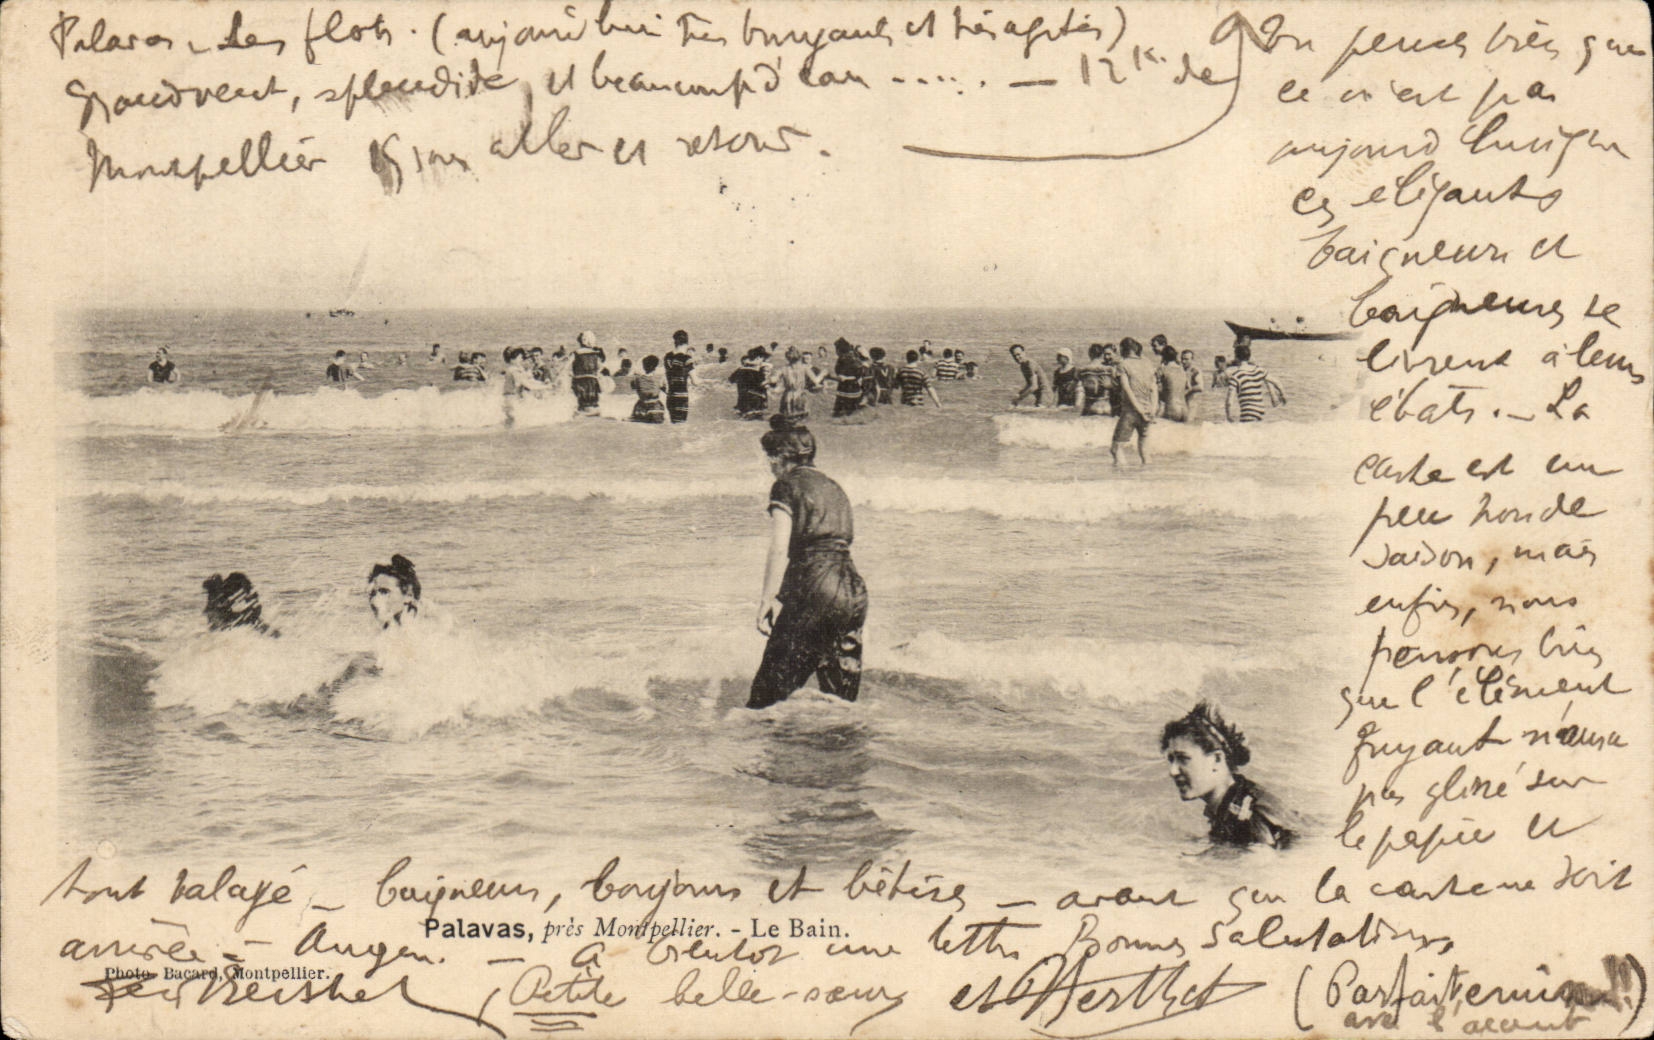 Palavas - Les flots. (aujourd'hui très bruyants et très agités)
Grand vent, splendide, et beaucoup d'eau ..... — 12 K. de
Montpellier aller et retour.
On pense bien que
ce n'est pas
aujourd'hui que
ces élégants
baigneurs et
baigneuses se
livrent à leurs
ébats. - La
carte est un
peu hors de
saison, mais
enfin, nous
pensons bien
que l'élément
fuyant n'aura
pas glissé sur
le papier et
tout balayé - baigneurs, bonjours et bêtises - avant que la carte ne soit
arrivée - - A bientôt une lettre Bonnes Salutations,
Palavas, près Montpellier. - Le Bain.
Photo. Bacard, Montpellier.
Petite belle-sœur et (Parfait
avec l'accent